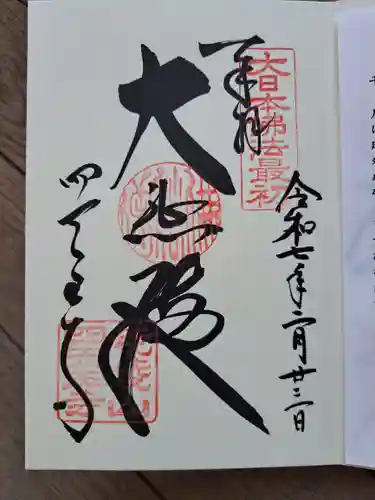 奉拝
大日本佛法最初
令和七年二月廿三日
大悲殿
四天王寺